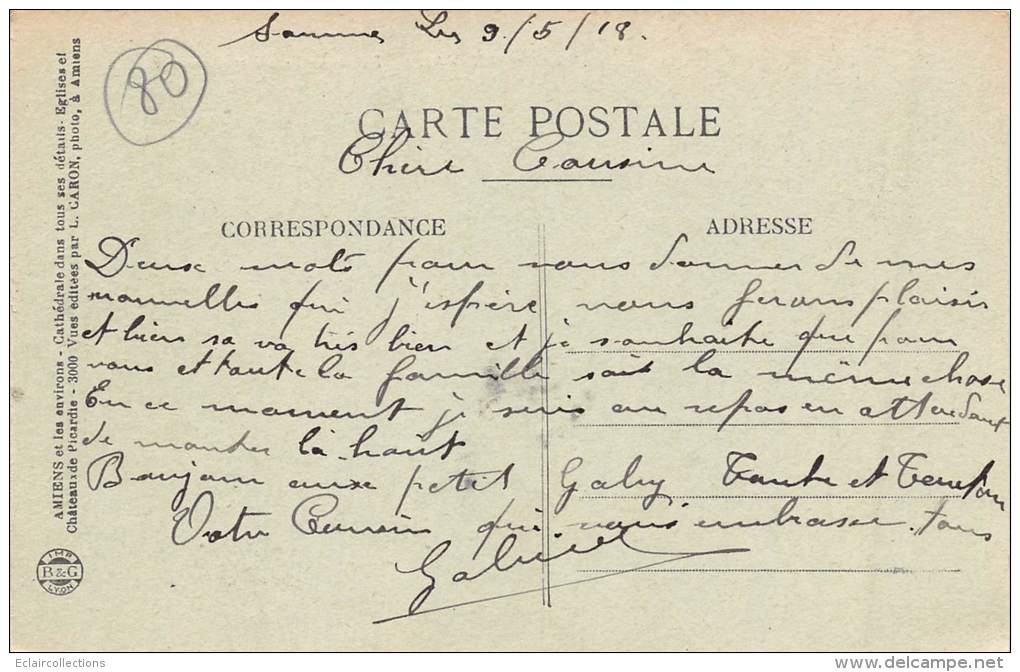 Somme Les 9/5/18.
80
CARTE POSTALE
Chère Cousine
CORRESPONDANCE
ADRESSE
Deux mots pour vous donner de mes
nouvelles qui j'espère vous ferons plaisir
et bien sa va très bien et je souhaite que pour
vous et toute la famille soit la même chose
En ce moment je suis au repos en attendant
de monter là haut
Bonjour aux petit Gaby Tante et
Votre Cousin qui vous embrasse tous
Gabriel
AMIENS et les environs - Cathédrale dans tous ses détails - Eglises et
Châteaux de Picardie - 3000 Vues éditées par L. CARON, photo, à Amiens
IMP.
B&G
LYON
Eclaircollections
delcampe.net